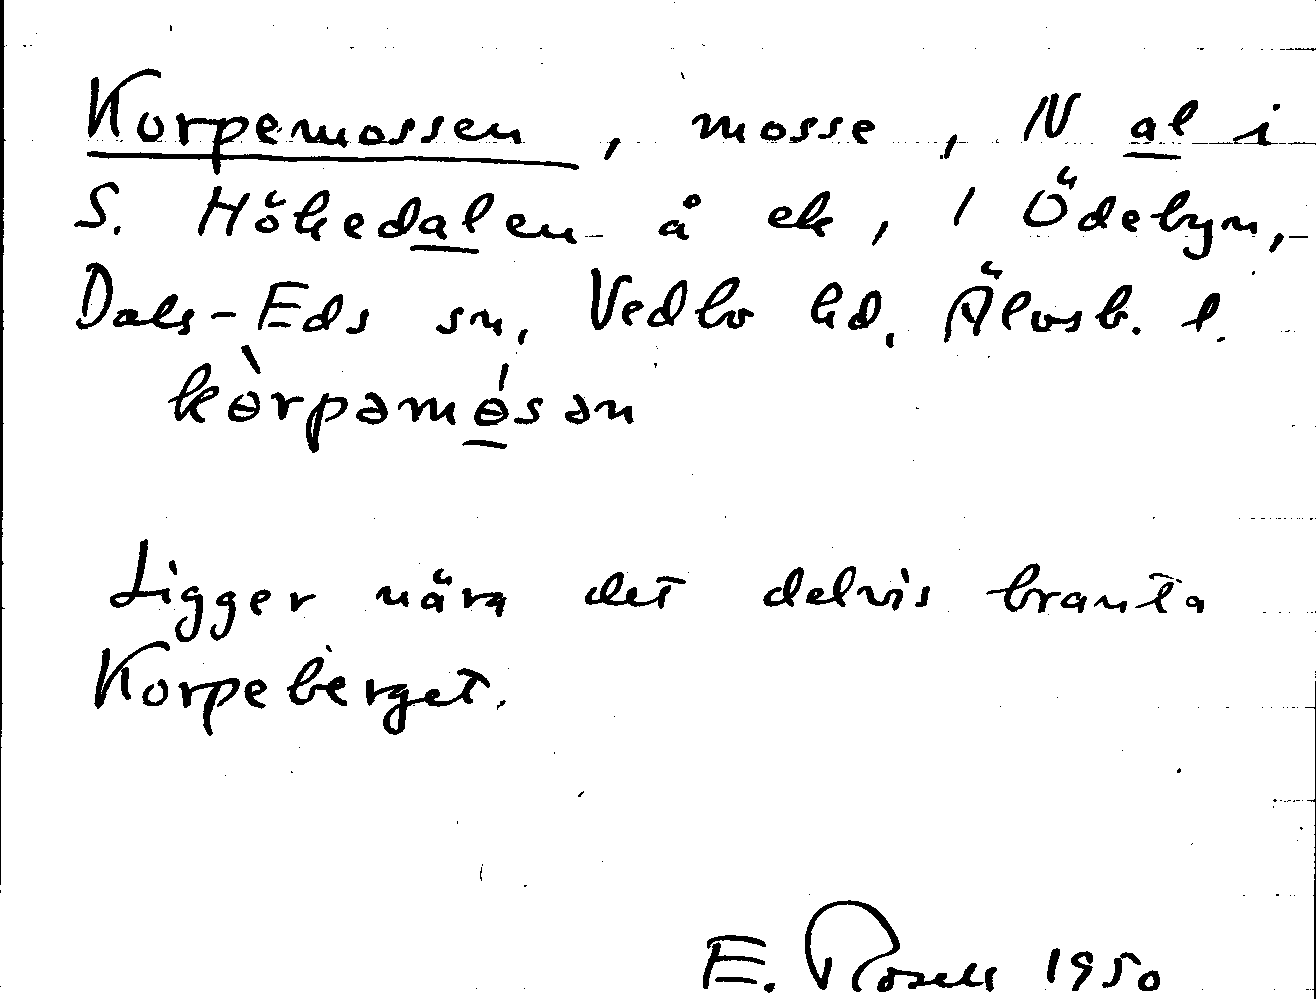 Korpemossen, mosse, N al i
S. Hökedalen å ek, 1 Ödebyn,
Dals-Eds sn, Vedbo hd, Älvsb. l.
kɵ̀rpəmɵ́sən
Ligger nära det delvis branta
Korpeberget.
E. Rosell 1950